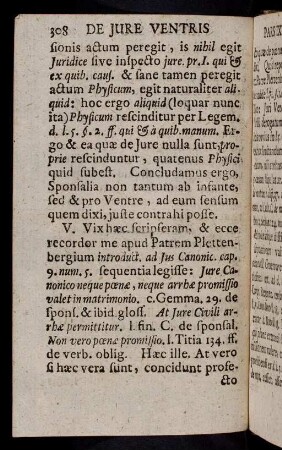 308 DE JURE VENTRIS
sionis actum peregit, is nihil egit
Juridice sive inspecto jure. pr. I. qui &
ex quib. caus. & sane tamen peregit
actum Physicum, egit naturaliter ali-
quid: hoc ergo aliquid (loquar nunc
ita) Physicum rescinditur per Legem.
d. l. 5. §. 2. ff. qui & a quib. manum. Er-
go & ea quæ de Jure nulla sunt, pro-
prie rescinduntur, quatenus Physici
quid subest. Concludamus ergo,
Sponsalia non tantum ab infante,
sed & pro Ventre, ad eum sensum
quem dixi, juste contrahi posse.
V. Vix hæc scripseram, & ecce
recordor me apud Patrem Pletten-
bergium introduct. ad Jus Canonic. cap.
9. num. 5. sequentia legisse: Jure Ca-
nonico neque pœnæ, neque arrhæ promissio
valet in matrimonio. c. Gemma. 29. de
spons. & ibid. gloss. At Jure Civili ar-
rhæ permittitur. l. fin. C. de sponsal.
Non vero pœnæ promissio. l. Titia 134. ff.
de verb. oblig. Hæc ille. At vero
si hæc vera sunt, concidunt profe-
cto